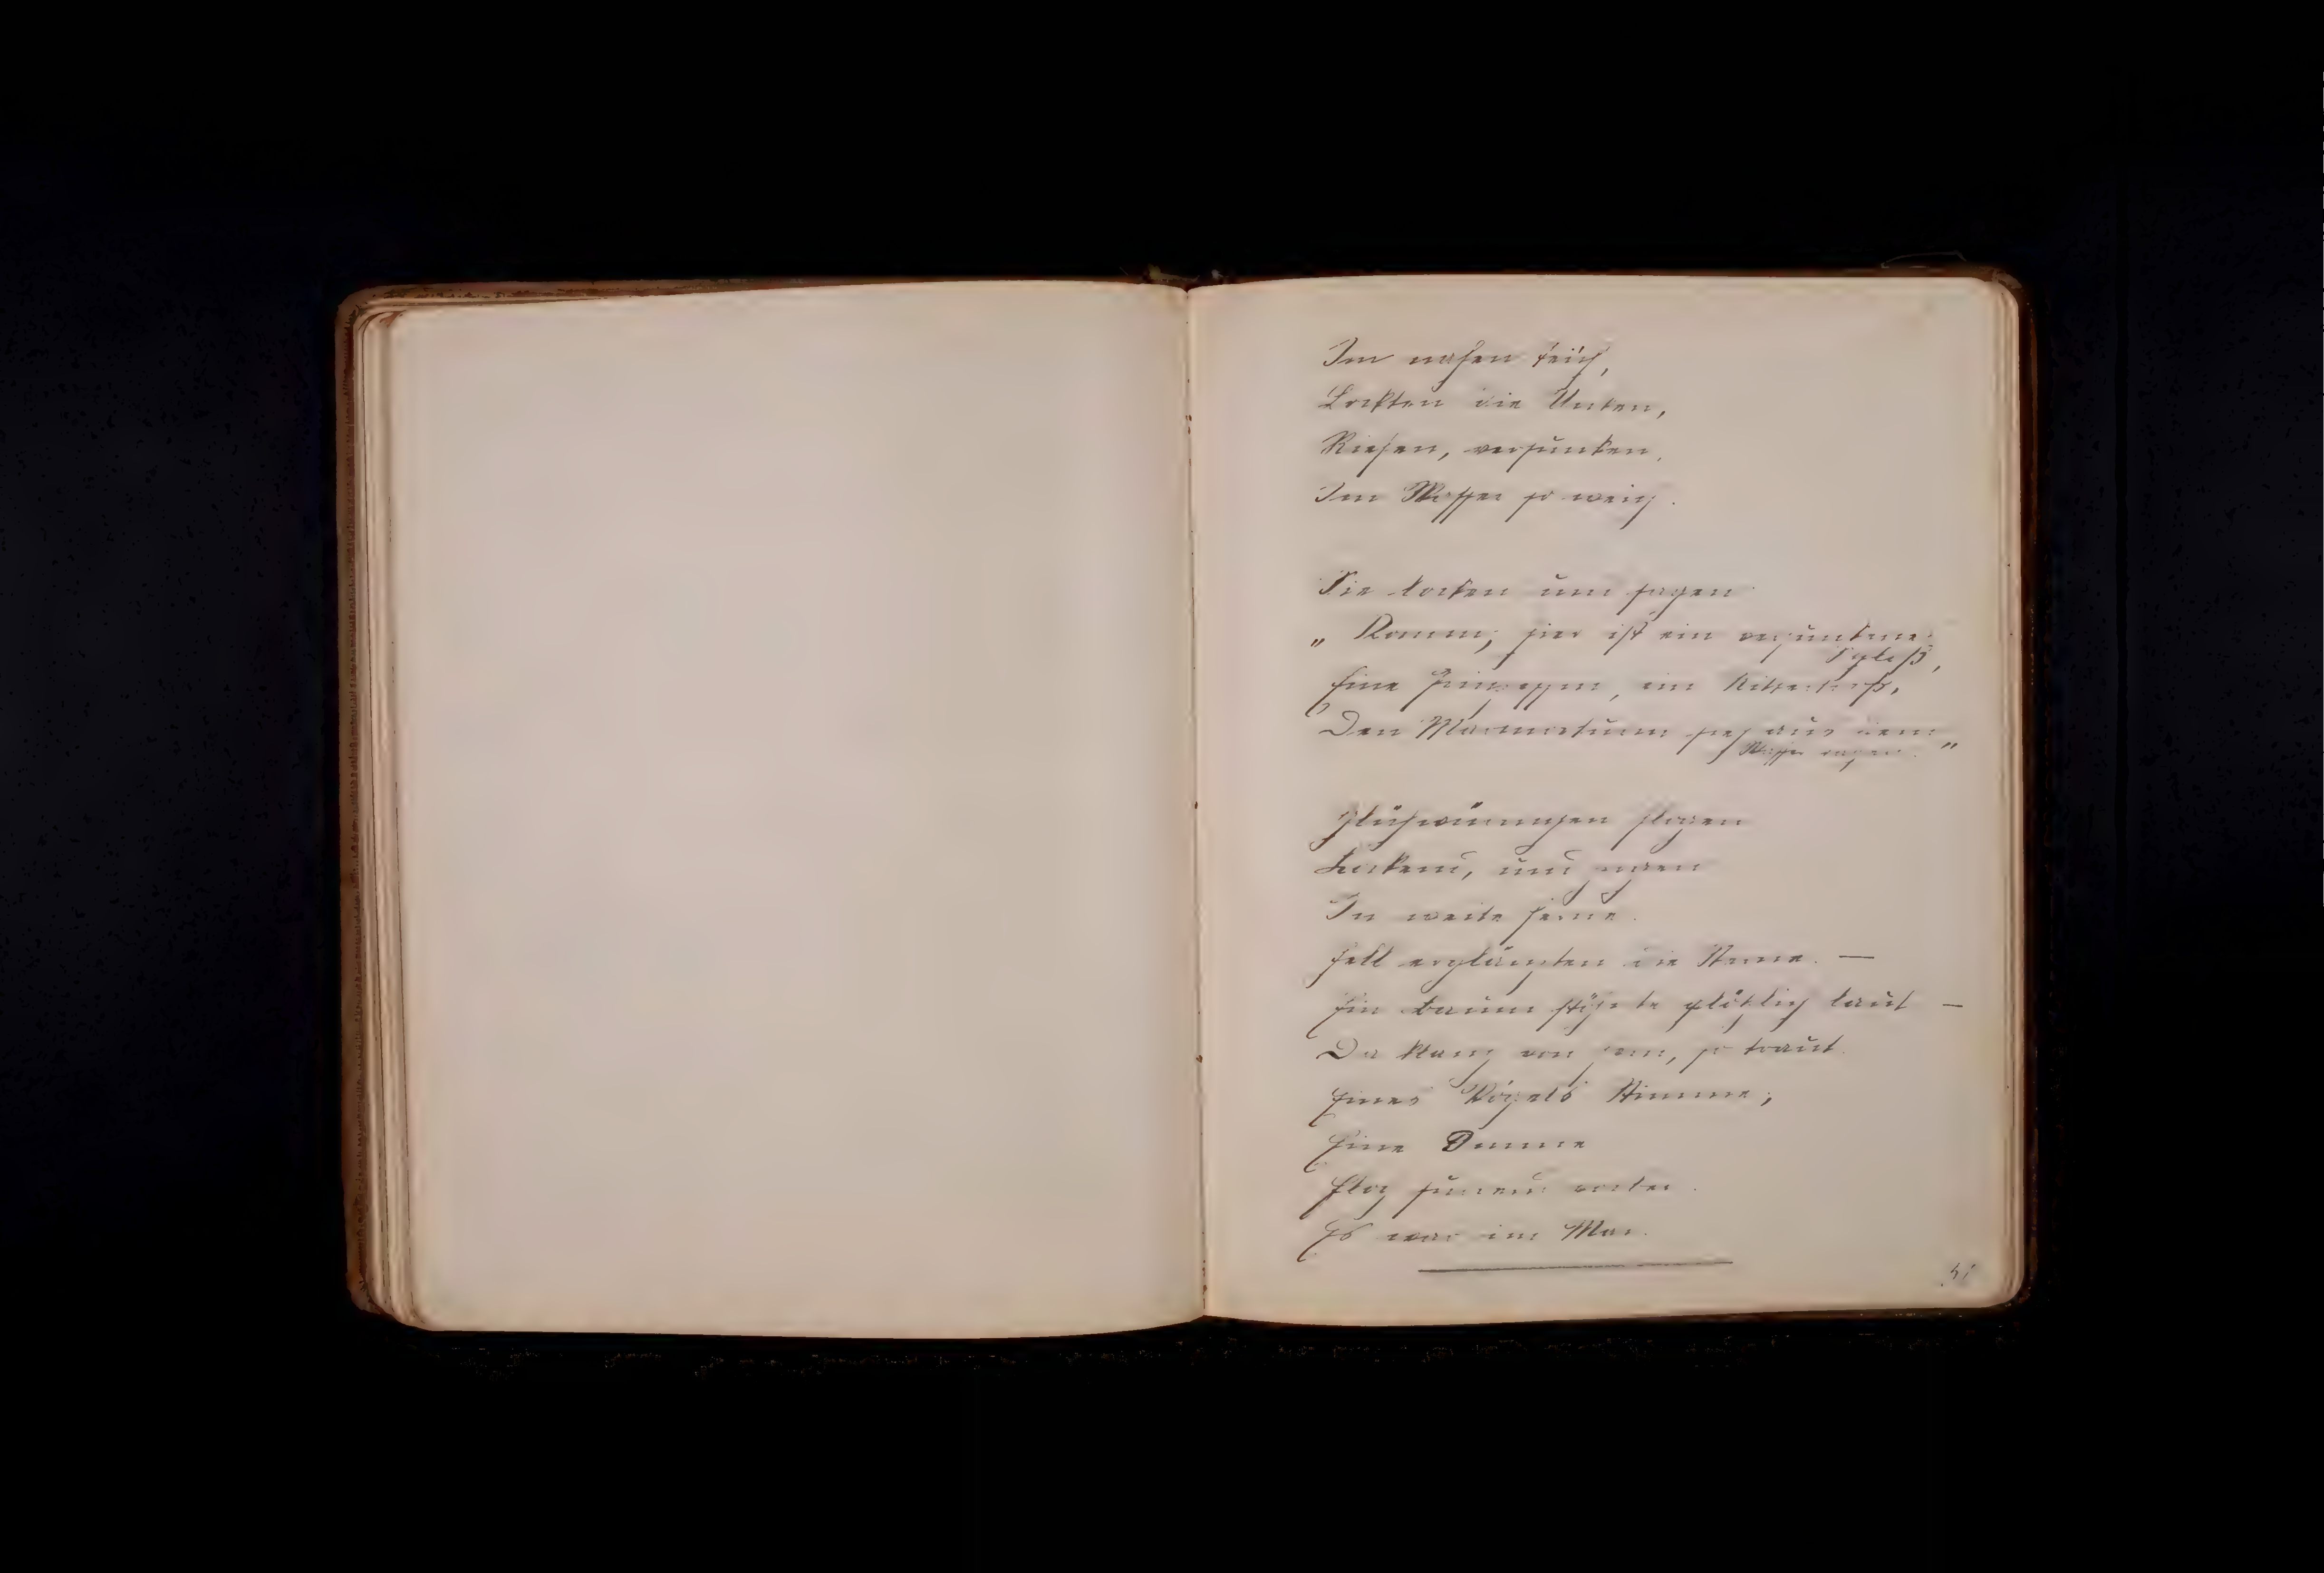 Im nahen Teich,
Lockten die Unken,
Riefen, versunken,
Im Wasser so weich.
Sie locken und sagen
„ Komm, hier ist ein versunkenes
Schloß,
Eine Prinzessin, ein Ritterroß,
Den Marmorturm sieh aus dem
Wasser ragen. "
Glühwürmchen flogen
Lockend, und zogen
In weite Ferne.
Hell erglänzten die Sterne. —
Ein Baum stöhnte plötzlich laut —
Da klang von fern, so traut
Eines Vogels Stimme;
Eine Imme
Flog surrend vorbei.
Es war im Mai.